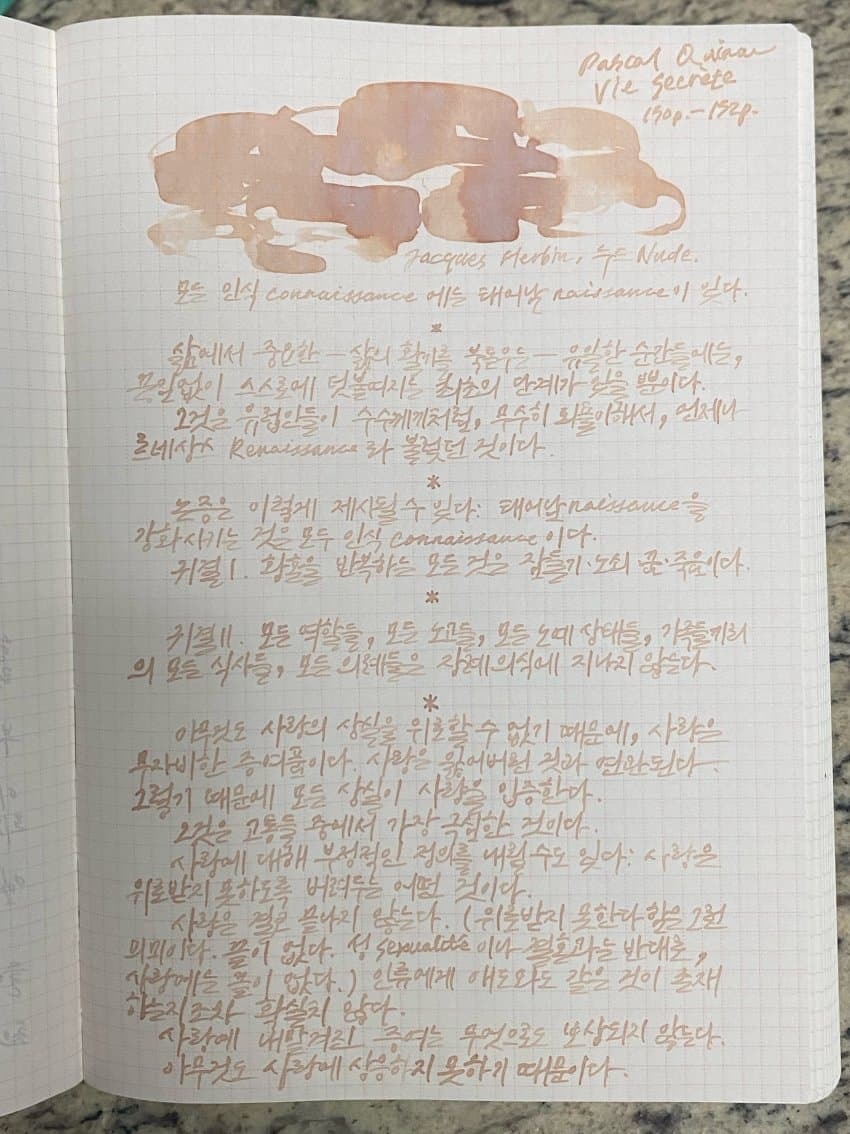 Pascal Quinar
Vie Secrète
150p.-152p.
Jacques Herbin, 누드 Nude.
모든 인식 connaissance 에는 태어남 naissance이 있다.
*
삶에서 중요한 — 삶의 활기를 북돋우는 — 유일한 순간들에는,
끊임없이 스스로에 덧붙여지는 최초의 단계가 있을 뿐이다.
그것은 유럽인들이 수수께끼처럼, 무수히 되풀이해서, 언제나
르네상스 Renaissance 라 불렀던 것이다.
*
논증은 이렇게 제시될 수 있다: 태어남 naissance을
강화시키는 것은 모두 인식 connaissance 이다.
귀결 I. 황홀을 반복하는 모든 것은 잠들기·노쇠·꿈·죽음이다.
*
귀결 II. 모든 역할들, 모든 노고들, 모든 노예 상태들, 가족들끼리
의 모든 식사들, 모든 의례들은 장례의식에 지나지 않는다.
*
아무것도 사랑의 상실을 위로할 수 없기 때문에, 사랑은
무자비한 증여품이다. 사랑은 잃어버린 것과 연관된다.
그렇기 때문에 모든 상실이 사랑을 입증한다.
그것은 고통들 중에서 가장 극심한 것이다.
사랑에 대해 부정적인 정의를 내릴 수도 있다: 사랑은
위로받지 못하도록 버려두는 어떤 것이다.
사랑은 결코 끝나지 않는다. (위로받지 못한다 함은 그런
의미이다. 끝이 없다. 성 sexualité 이나 결혼과는 반대로,
사랑에는 끝이 없다.) 인류에게 애도와도 같은 것이 존재
하는지조차 확실치 않다.
사랑에 내맡겨진 증여는 무엇으로도 보상되지 않는다.
아무것도 사랑에 상응하지 못하기 때문이다.